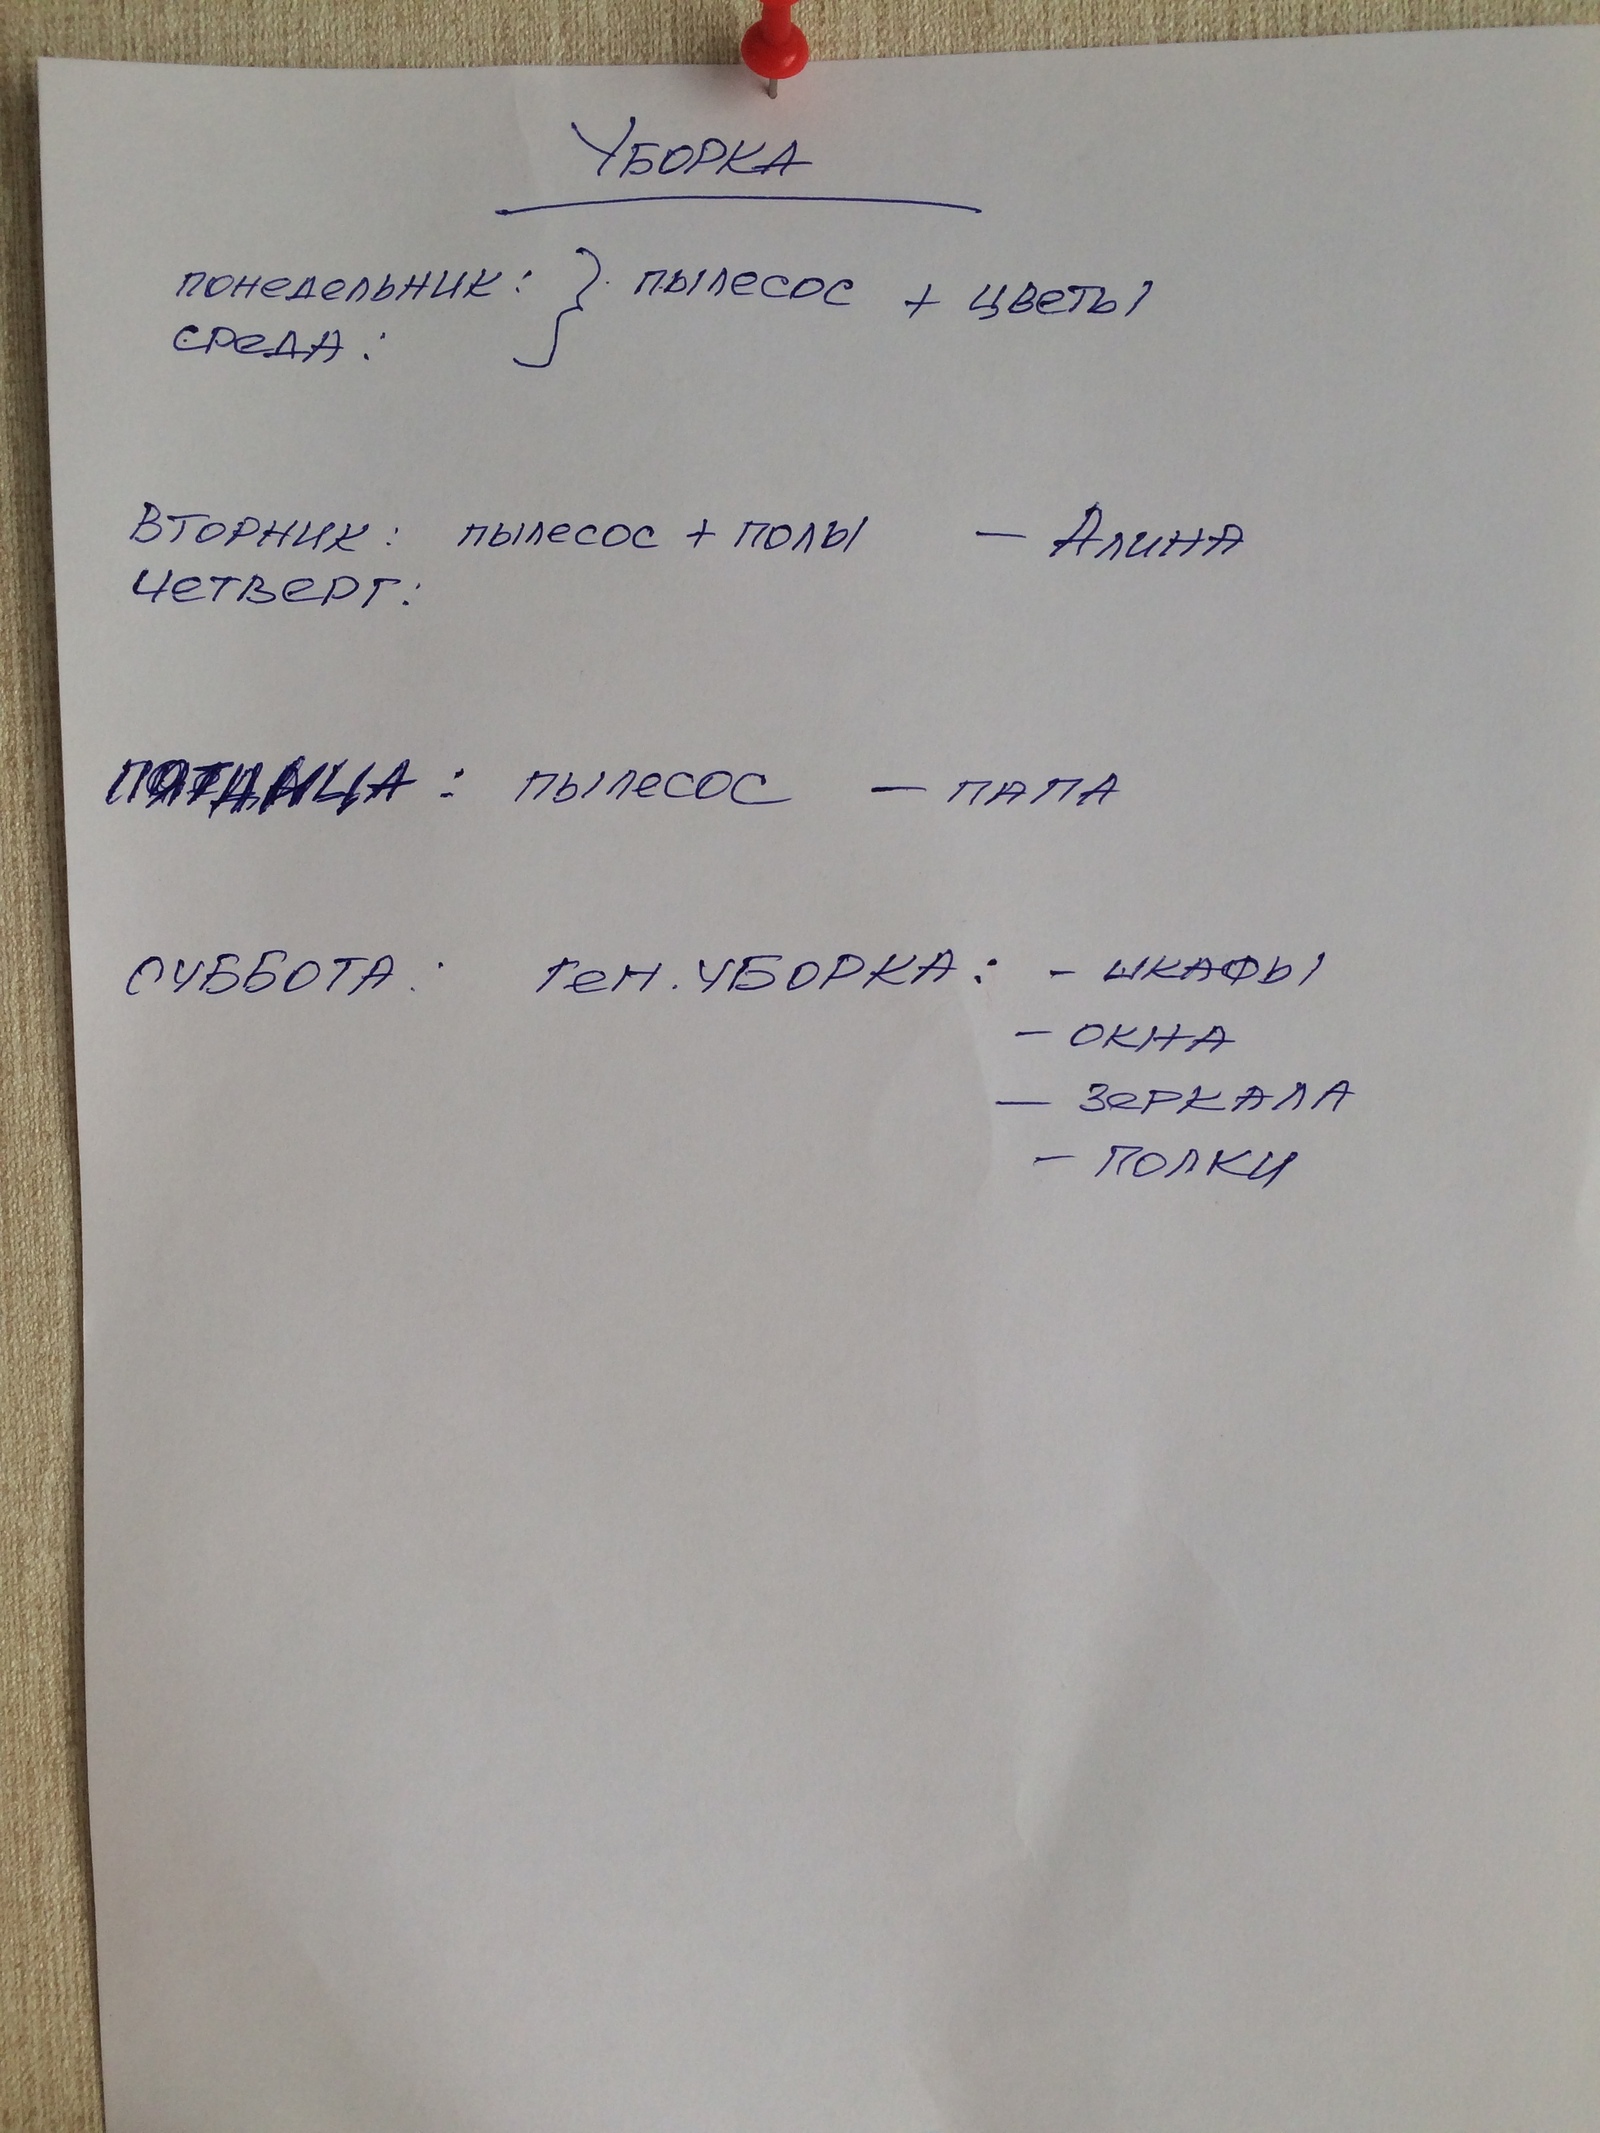 УБОРКА
понедельник: } пылесос + цветы
среда:
Вторник: пылесос + полы — Алина
Четверг:
ПЯТНИЦА: пылесос — папа
СУББОТА: Ген. УБОРКА: - шкафы
- окна
- зеркала
- полки